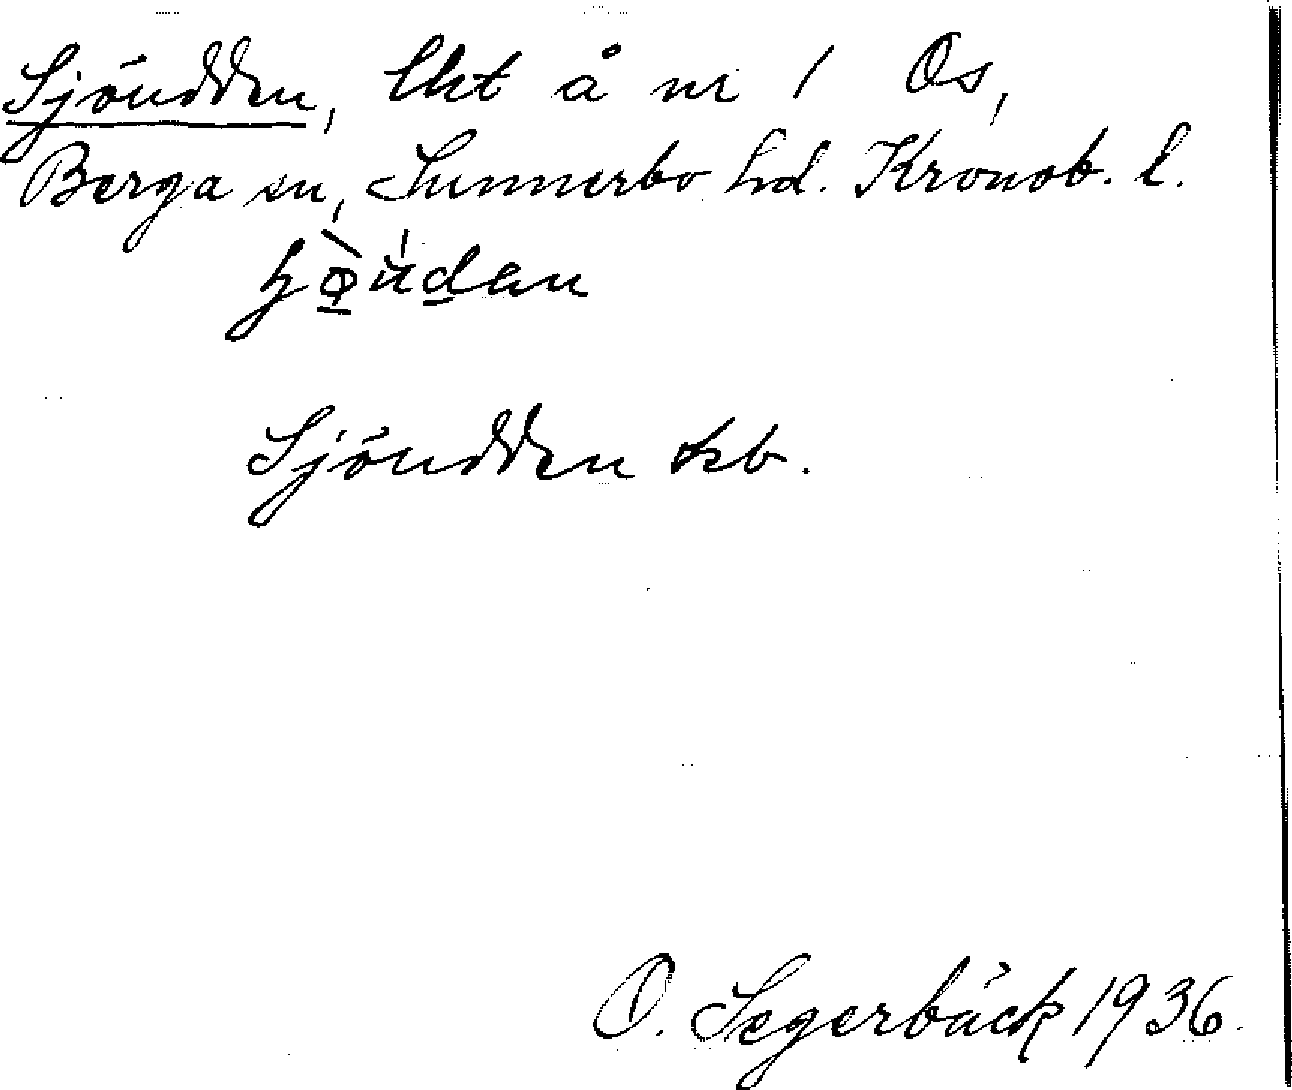 Sjöudden, lht å nr 1 Os,
Berga sn, Sunnerbo hd. Kronob. l.
Sjöudden kb.
O. Segerbäck 1936.